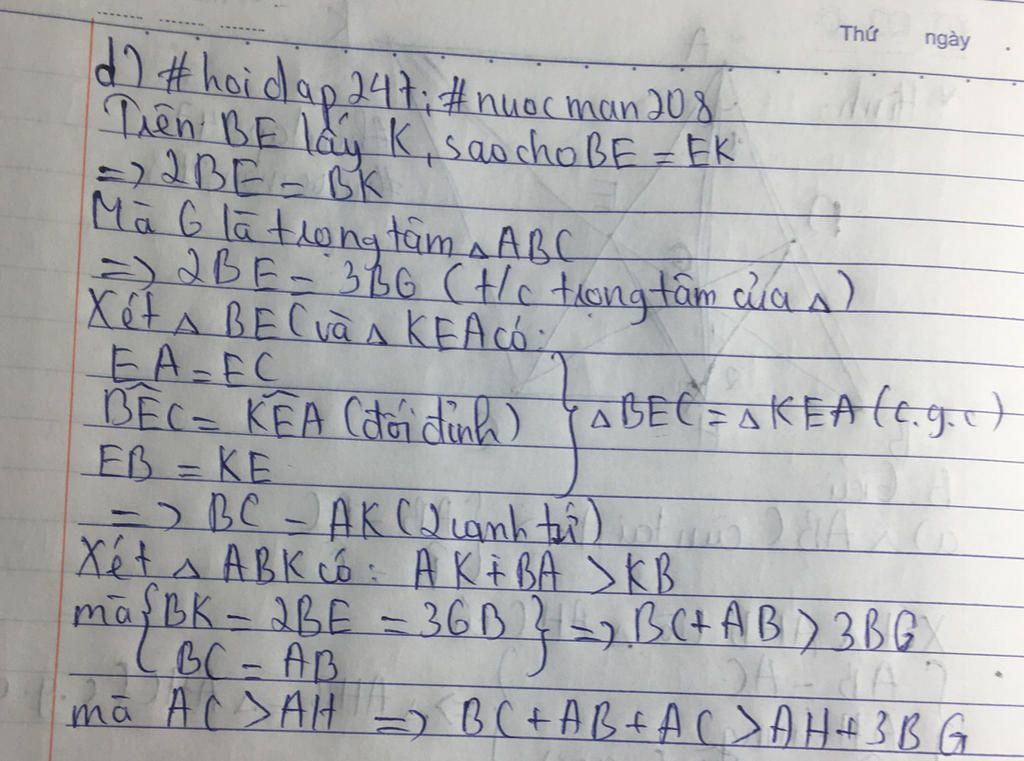 Thứ ngày
d) #hoidap247; #nuocman208
Trên BE lấy K, sao cho BE = EK
=> 2BE = BK
Mà G là trọng tâm △ABC
=> 2BE = 3BG (t/c trọng tâm của △)
Xét △ BEC và △ KEA có:
EA = EC
BEC = KEA (đối đỉnh) } △BEC = △KEA (c.g.c)
EB = KE
=> BC = AK (2 cạnh t/ư)
Xét △ ABK có: AK + BA > KB
mà { BK = 2BE = 3GB } => BC + AB > 3BG
BC = AB
mà AC > AH => BC + AB + AC > AH + 3BG